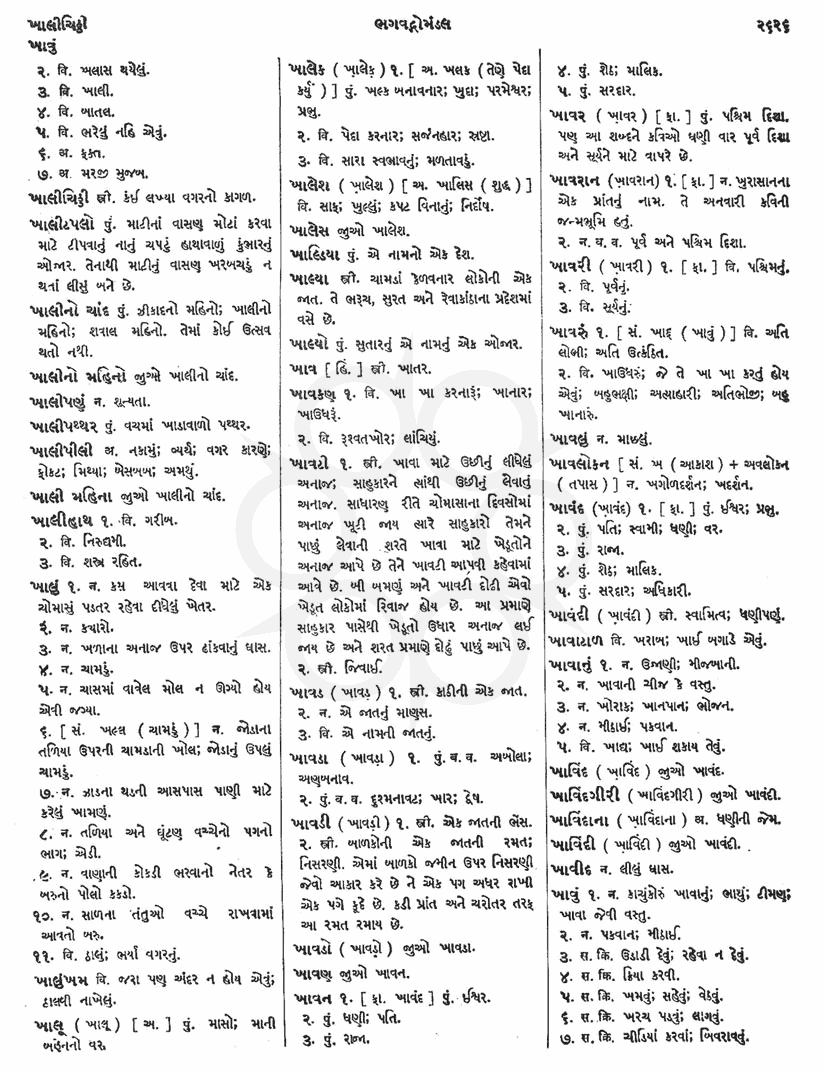 ખાલીચિઠ્ઠી
ભગવદ્ગોમંડલ
૨૬૨૬
ખાવું
૨. વિ. ખલાસ થયેલું.
૩. વિ. ખાલી.
૪. વિ. બાતલ.
૫. વિ. ભરેલું નહિ એવું.
૬. અ. ફક્ત.
૭. અ. મરજી મુજબ.
ખાલીચિઠ્ઠી સ્ત્રી. કંઈ લખ્યા વગરનો કાગળ.
ખાલીટપલો પું. માટીનાં વાસણ મોટાં કરવા
માટે ટીપવાનું નાનું ચપટું હાથાવાળું કુંભારનું
ઓજાર. તેનાથી માટીનું વાસણ ખરબચડું ન
થતાં લીસું બને છે.
ખાલીનો ચાંદ પું. ઝીકાદનો મહિનો; ખાલીનો
મહિનો; શવ્વાલ મહિનો. તેમાં કોઈ ઉત્સવ
થતો નથી.
ખાલીનો મહિનો જુઓ ખાલીનો ચાંદ.
ખાલીપણું ન. શૂન્યતા.
ખાલીપથ્થર પું. વચમાં ખાડાવાળો પથ્થર.
ખાલીપીલી અ. નકામું; વ્યર્થ; વગર કારણે;
ફોકટ; મિથ્યા; બેસબબ; અમથું.
ખાલી મહિના જુઓ ખાલીનો ચાંદ.
ખાલીહાથ ૧. વિ. ગરીબ.
૨. વિ. નિરુદ્યમી.
૩. વિ. શસ્ત્ર રહિત.
ખાલું ૧. ન. કસ આવવા દેવા માટે એક
ચોમાસું પડતર રહેવા દીધેલું ખેતર.
૨. ન. કયારો.
૩. ન. ખળાના અનાજ ઉપર ઢાંકવાનું ઘાસ.
૪. ન. ચામડું.
૫. ન. ચાસમાં વાવેલ મોલ ન ઊગ્યો હોય
એવી જગ્યા.
૬. [ સં. ખલ્લ ( ચામડું ) ] ન. જોડાના
તળિયા ઉપરની ચામડાની ખોલ; જોડાનું ઉપલું
ચામડું.
૭. ન. ઝાડના થડની આસપાસ પાણી માટે
કરેલું ખામણું.
૮. ન. તળિયા અને ઘૂંટણ વચ્ચેનો પગનો
ભાગ; એડી.
૯. ન. વાણાની કોકડી ભરવાનો નેતર કે
બરુનો પોલો કકડો.
૧૦. ન. સાળના તંતુઓ વચ્ચે રાખવામાં
આવતો બરુ.
૧૧. વિ. ઠાલું; ભર્યા વગરનું.
ખાલુંખમ વિ. જરા પણ અંદર ન હોય એવું;
ઠાલવી નાખેલું.
ખાલૂ ( ખાલૂ ) [ અ. ] પું. માસો; માની
બહેનનો વર.
ખાલેક ( ખ઼ાલેક઼ ) ૧. [ અ. ખલક ( તેણે પેદા
કર્યું ) ] પું. ખલ્ક બનાવનાર; ખુદા; પરમેશ્વર;
પ્રભુ.
૨. વિ. પેદા કરનાર; સર્જનહાર; સ્રષ્ટા.
૩. વિ. સારા સ્વભાવનું; મળતાવડું.
ખાલેશ ( ખ઼ાલેશ ) [ અ. ખાલિસ ( શુદ્ધ ) ]
વિ. સાફ; ખુલ્લું; કપટ વિનાનું; નિર્દોષ.
ખાલેસ જુઓ ખાલેશ.
ખાલ્ડિયા પું. એ નામનો એક દેશ.
ખાલ્યા સ્ત્રી. ચામડાં કેળવનાર લોકોની એક
જાત. તે ભરૂચ, સુરત અને રેવાકાંઠાના પ્રદેશમાં
વસે છે.
ખાલ્યો પું. સુતારનું એ નામનું એક ઓજાર.
ખાવ [ હિં. ] સ્ત્રી. ખાતર.
ખાવકણ ૧. વિ. ખા ખા કરનારૂં; ખાનાર;
ખાઉધરૂં.
૨. વિ. રૂશ્વતખોર; લાંચિયું.
ખાવટી ૧. સ્ત્રી. ખાવા માટે ઉછીનું લીધેલું
અનાજ; સાહુકારને ત્યાંથી ઉછીનું લેવાતું
અનાજ. સાધારણ રીતે ચોમાસાના દિવસોમાં
અનાજ ખૂટી જાય ત્યારે સાહુકારો તેમને
પાછું લેવાની શરતે ખાવા માટે ખેડૂતોને
અનાજ આપે છે તેને ખાવટી આપવી કહેવામાં
આવે છે. બી બમણું અને ખાવટી દોઢી એવો
ખેડૂત લોકોમાં રિવાજ હોય છે. આ પ્રમાણે
સાહુકાર પાસેથી ખેડૂતો ઉધાર અનાજ લઈ
જાય છે અને શરત પ્રમાણે દોઢું પાછું આપે છે.
૨. સ્ત્રી. જિવાઈ.
ખાવડ ( ખાવડ઼ ) ૧. સ્ત્રી. કાઠીની એક જાત.
૨. ન. એ જાતનું માણસ.
૩. વિ. એ નામની જાતનું.
ખાવડા ( ખાવડ઼ા ) ૧. પું. બ. વ. અબોલા;
અણબનાવ.
૨. પું. બ. વ. દુશ્મનાવટ; ખાર; દ્વેષ.
ખાવડી ( ખાવડ઼ી ) ૧. સ્ત્રી. એક જાતની ભેંસ.
૨. સ્ત્રી. બાળકોની એક જાતની રમત;
નિસરણી. એમાં બાળકો જમીન ઉપર નિસરણી
જેવો આકાર કરે છે ને એક પગ અધર રાખી
એક પગે કૂદે છે. કડી પ્રાંત અને ચરોતર તરફ
આ રમત રમાય છે.
ખાવડો ( ખાવડ઼ો ) જુઓ ખાવડા.
ખાવણ જુઓ ખાવન.
ખાવન ૧. [ ફા. ખાવંદ ] પું. ઈશ્વર.
૨. પું. ધણી; પતિ.
૩. પું. રાજા.
૪. પું. શેઠ; માલિક.
૫. પું. સરદાર.
ખાવર ( ખ઼ાવર ) [ ફા. ] પું. પશ્ચિમ દિશા.
પણ આ શબ્દને કવિઓ ઘણી વાર પૂર્વ દિશા
અને સૂર્યને માટે વાપરે છે.
ખાવરાન ( ખ઼ાવરાન ) ૧. [ ફા. ] ન. ખુરાસાનના
એક પ્રાંતનું નામ. તે અનવારી કવિની
જન્મભૂમિ હતું.
૨. ન. બ. વ. પૂર્વ અને પશ્ચિમ દિશા.
ખાવરી ( ખ઼ાવરી ) ૧. [ ફા. ] વિ. પશ્ચિમનું.
૨. વિ. પૂર્વનું.
૩. વિ. સૂર્યનું.
ખાવરું ૧. [ સં. ખાદ્ ( ખાવું ) ] વિ. અતિ
લોભી; અતિ ઉત્કંઠિત.
૨. વિ. ખાઉધરું; જે તે ખા ખા કરતું હોય
એવું; બહુભક્ષી; અત્યાહારી; અતિભોજી; બહુ
ખાનારું.
ખાવલું ન. માછલું.
ખાવલોકન [ સં. ખ ( આકાશ ) + અવલોકન
( તપાસ ) ] ન. ખગોળદર્શન; ખદર્શન.
ખાવંદ ( ખ઼ાવંદ ) ૧. [ ફા. ] પું. ઈશ્વર; પ્રભુ.
૨. પું. પતિ; સ્વામી; ધણી; વર.
૩. પું. રાજા.
૪. પું. શેઠ; માલિક.
૫. પું. સરદાર; અધિકારી.
ખાવંદી ( ખ઼ાવંદી ) સ્ત્રી. સ્વામિત્વ; ધણીપણું.
ખાવાટાળ વિ. ખરાબ; ખાઈ બગાટે એવું.
ખાવાનું ૧. ન. ઉજાણી; મીજબાની.
૨. ન. ખાવાની ચીજ કે વસ્તુ.
૩. ન. ખોરાક; ખાનપાન; ભોજન.
૪. ન. મીઠાઈ; પકવાન.
૫. વિ. ખાદ્ય; ખાઈ શકાય તેવું.
ખાવિંદ ( ખ઼ાવિંદ ) જુઓ ખાવંદ.
ખાવિંદગીરી ( ખ઼ાવિંદગીરી ) જુઓ ખાવંદી.
ખાવિંદાના ( ખ઼ાવિંદાના ) અ. ધણીની જેમ.
ખાવિંદી ( ખ઼ાવિંદી ) જુઓ ખાવંદી.
ખાવીદ ન. લીલું ઘાસ.
ખાવું ૧. ન. કાચુંકોરું ખાવાનું; ભાથું; ટીમણ;
ખાવા જેવી વસ્તુ.
૨. ન. પકવાન; મીઠાઈ.
૩. સ. ક્રિ. ઉડાડી દેવું; રહેવા ન દેવું.
૪. સ. ક્રિ. ક્રિયા કરવી.
૫. સ. ક્રિ. ખમવું; સહેવું; વેઠવું.
૬. સ. ક્રિ. ખરચ પડવું; લાગવું.
૭. સ. ક્રિ. ચીડિયાં કરવાં; બિવરાવવું.